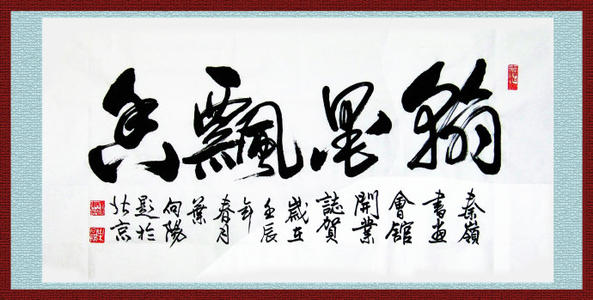 翰墨飄香
秦嶺
書画
會館
開業
誌賀
歲在
壬辰
年
春月
葉
向陽
題於
北京